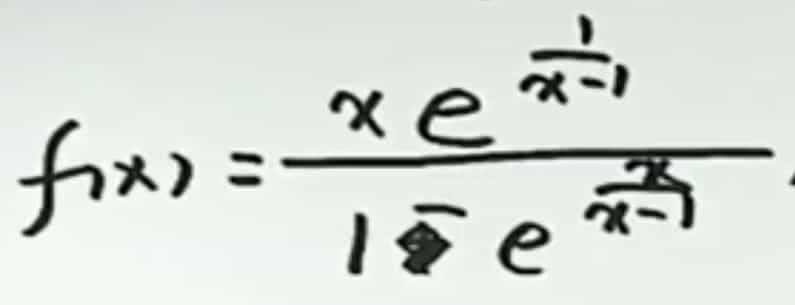 f(x) = \frac{x e^{\frac{1}{x-1}}}{1 - e^{\frac{x}{x-1}}}.